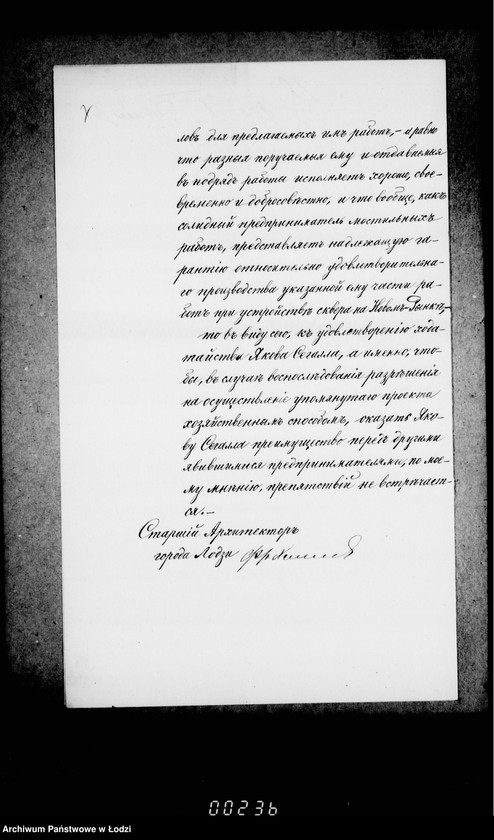 ловъ для предлагаемыхъ имъ работъ, – и равно
что разныя поручаемыя ему и отдаваемыя
въ подрядъ работы исполняетъ хорошо, свое-
временно и добросовѣстно, и что вообще, какъ
солидный предприниматель мостильныхъ
работъ, представляетъ надлежащую га-
рантію относительно удовлетворительна-
го производства указанной ему части ра-
ботъ при устройствѣ сквера на Новомъ-Рынкѣ, –
то въ виду сего, къ удовлетворенію хода-
тайства Якова Сегалла, а именно, что-
бы, въ случаѣ воспослѣдованія разрѣшенія
на осуществленіе упомянутаго проекта
хозяйственнымъ способомъ, оказать Яко-
ву Сегалла преимущество передъ другими
явившимися предпринимателями, по мое-
му мнѣнію, препятствій не встрѣчает-
ся. –
Старшій Архитекторъ
города Лодзи
00236
Archiwum Państwowe w Łodzi